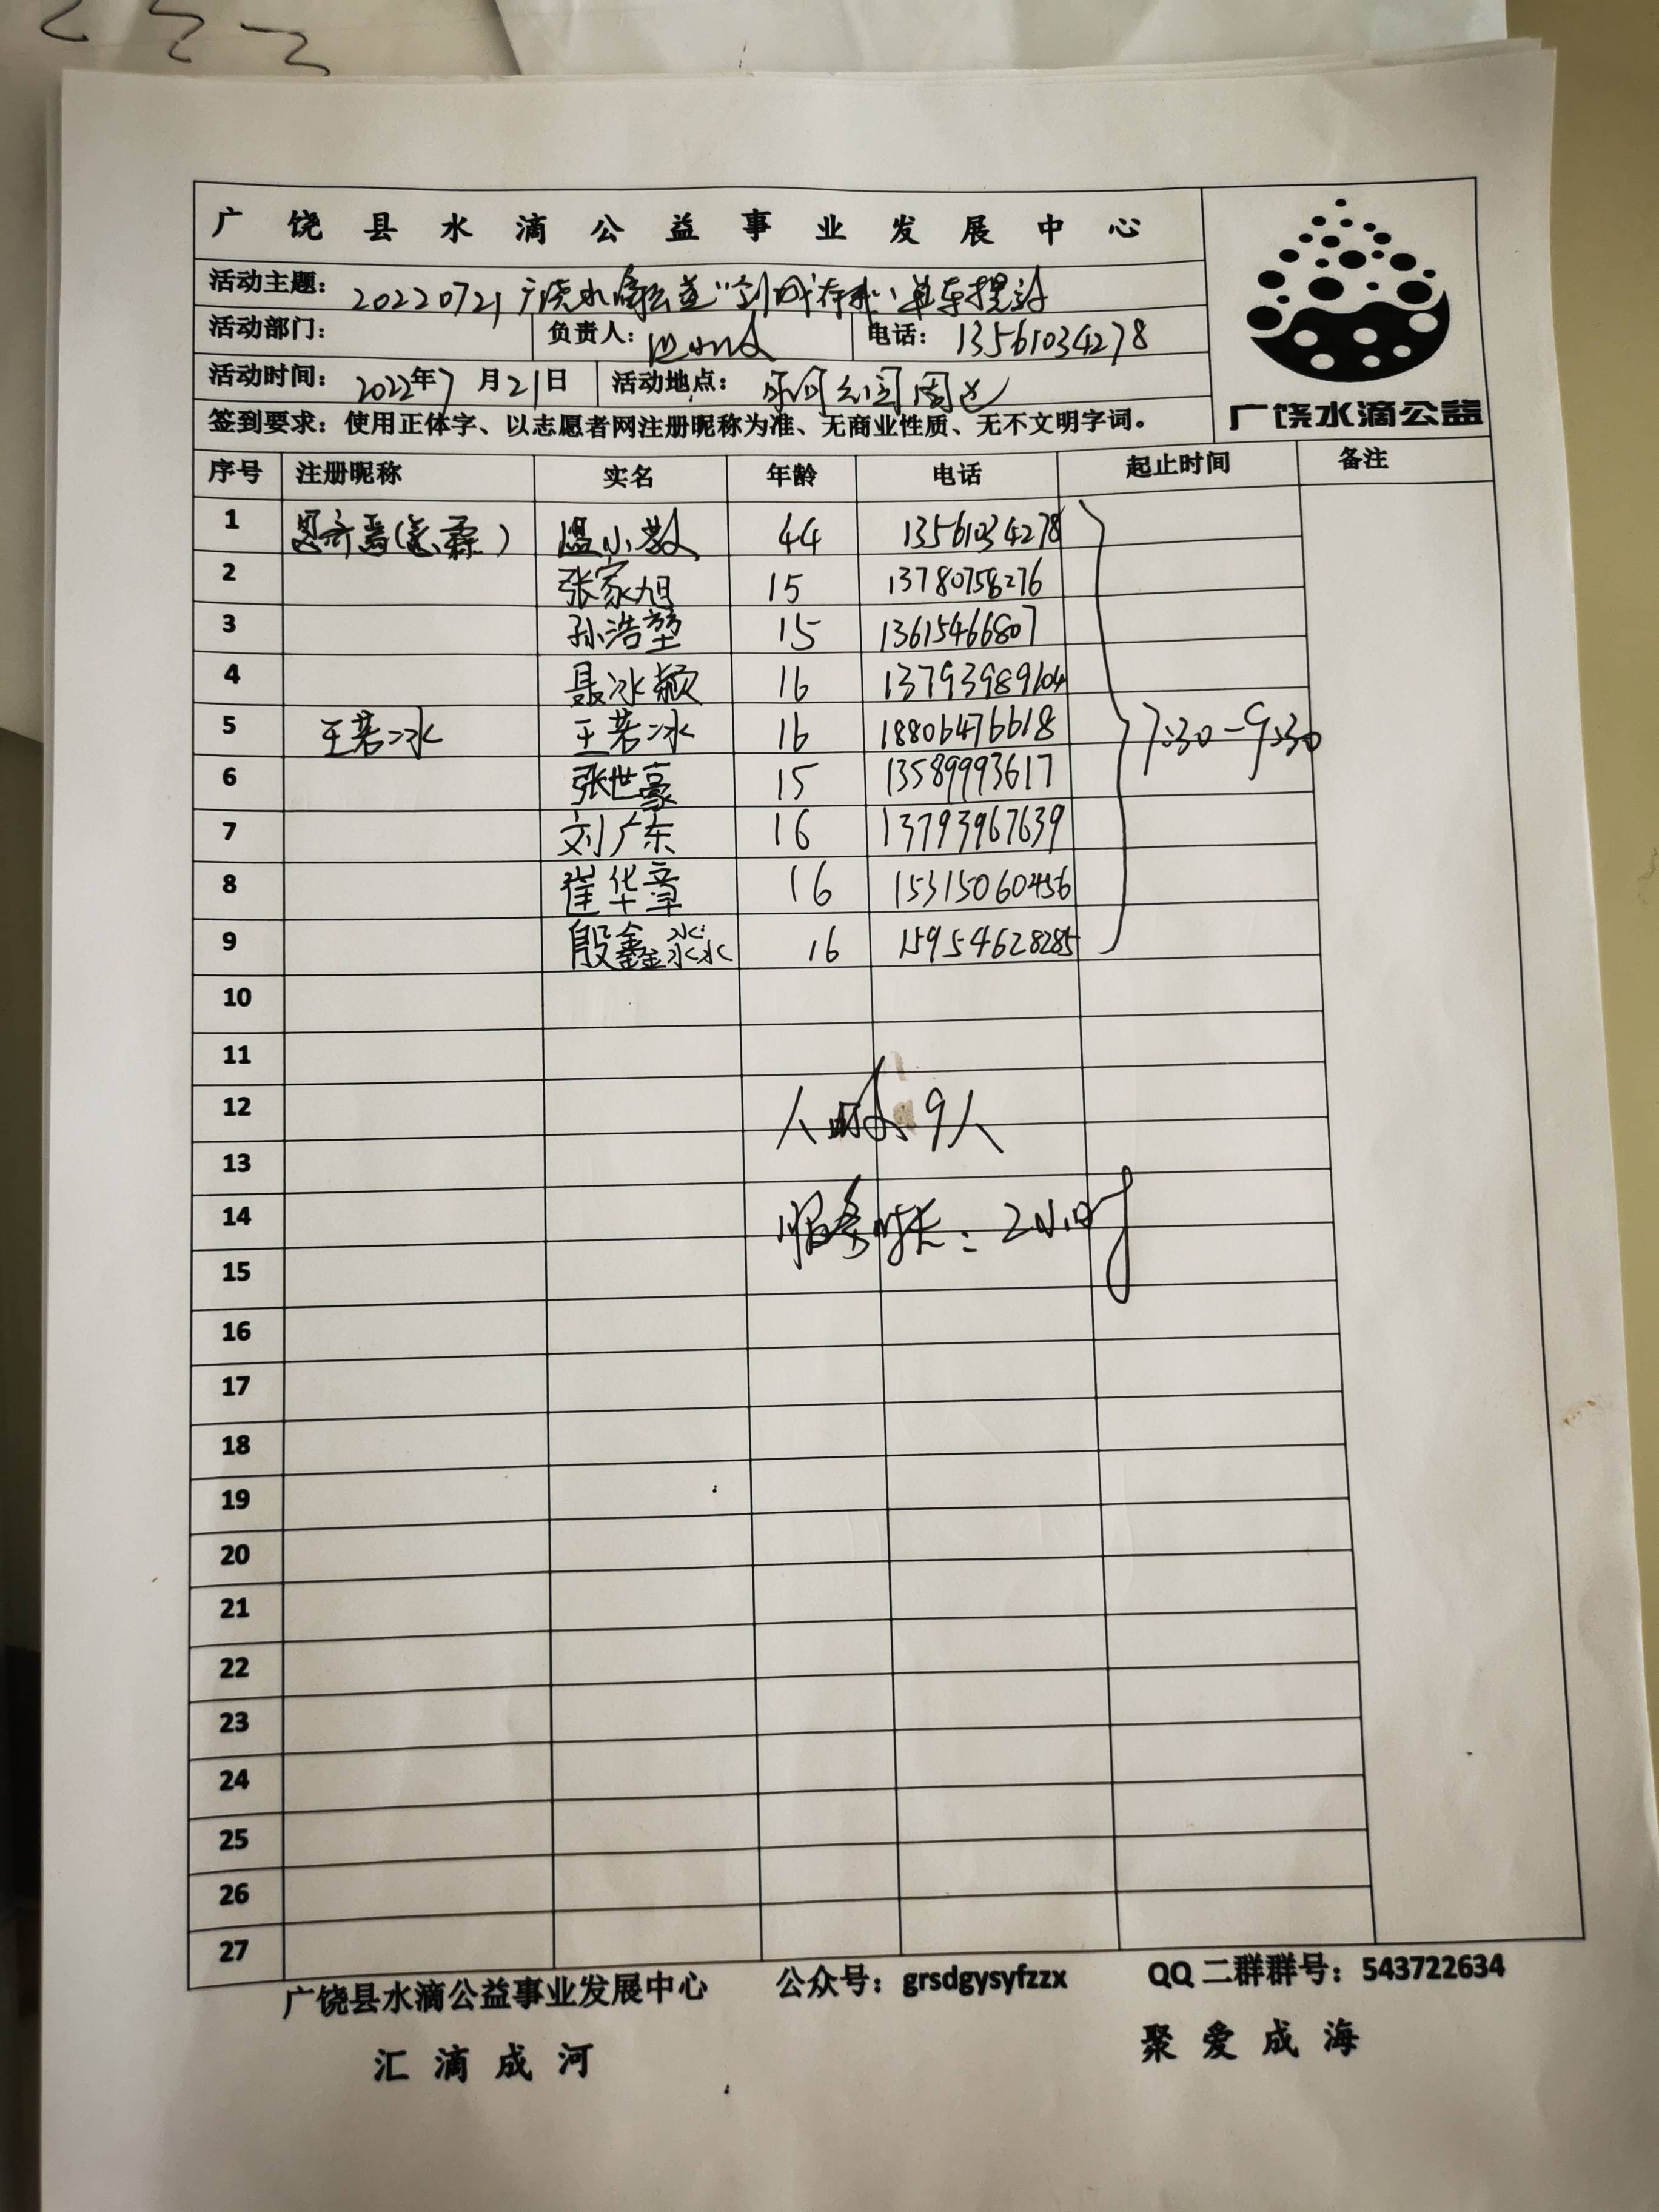 广饶县水滴公益事业发展中心
活动主题： 20220721广饶水滴公益"创城有我"单车摆放
广饶水滴公益
活动部门： 负责人：温小敏 电话：13561034278
活动时间：2022年7月21日 活动地点：周边
签到要求：使用正体字、以志愿者网注册昵称为准、无商业性质、无不文明字词。
序号 注册昵称 实名 年龄 电话 起止时间 备注
1 温小敏 44 13561034278
2 张家旭 15 13780758276
3 孙浩堃 15 13615466807
4 聂冰颖 16 13793989604
5 王若冰 王若冰 16 18806476618 7:30-9:30
6 张世豪 15 13589993617
7 刘广东 16 13793967639
8 崔华章 16 15315060456
9 殷鑫淼 16 15954628285
10
11
12 人数：9人
13
14 服务时长：2小时
15
16
17
18
19
20
21
22
23
24
25
26
27
广饶县水滴公益事业发展中心 公众号：grsdgysyfzzx QQ二群群号：543722634
汇滴成河 聚爱成海